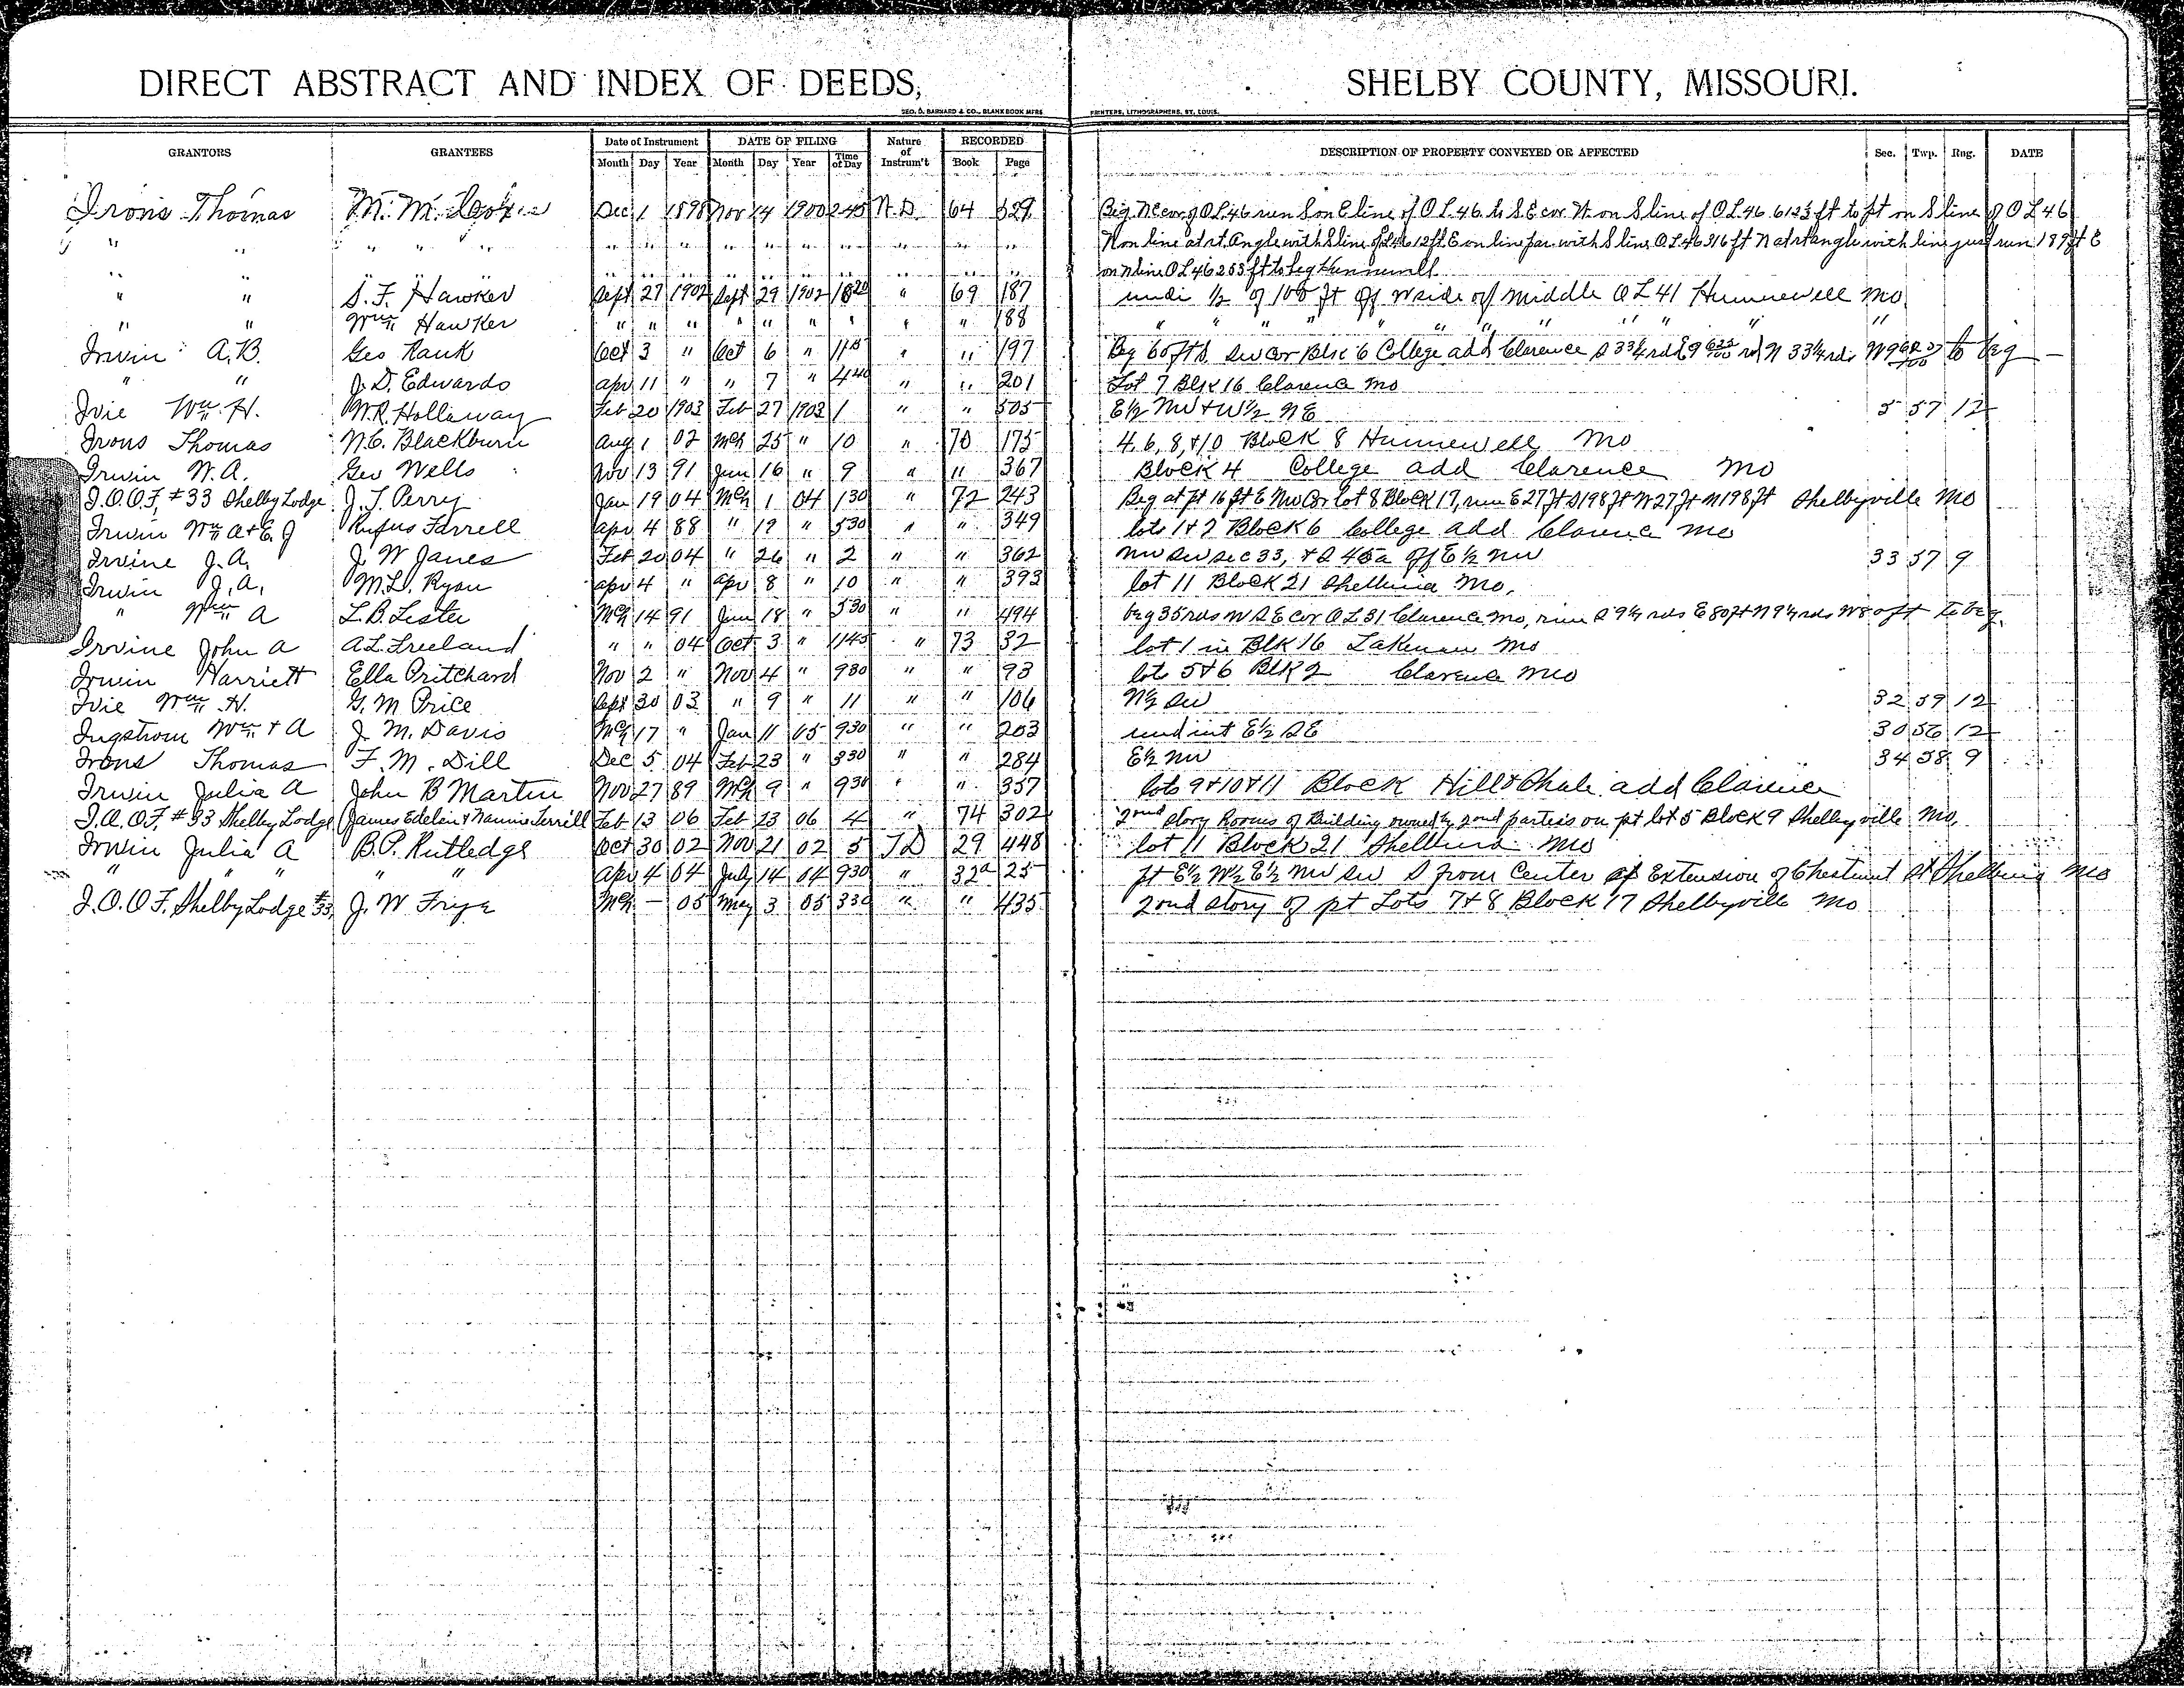 DIRECT ABSTRACT AND INDEX OF DEEDS, SHELBY COUNTY, MISSOURI.
GEO. D. BARNARD & CO., BLANK BOOK MFRS PRINTERS, LITHOGRAPHERS, ST. LOUIS.
GRANTORS GRANTEES Date of Instrument DATE OF FILING Nature of Instrum't RECORDED DESCRIPTION OF PROPERTY CONVEYED OR AFFECTED Sec. Twp. Rng. DATE
Month Day Year Month Day Year Time of Day Book Page
Irons Thomas M. M. Dec 1 1898 Nov 14 1900 2 45 W.D. 64 529 Beg. NE cor of OL 46 run S on E line of OL 46 to S.E. cor W on S line of OL 46 612½ ft to pt on S line of OL 46
" " " " " " " " " " " " " " N on line at rt. Angle with S line of OL 46 12 ft. E on line par. with S line OL 46 316 ft N at rt angle with line just run 189 ft E
" " " " " " " " " " " on N line OL 46 253 ft to beg Hunnewell
" " S. F. Hawker Sept 27 1902 Sept 29 1902 10 20 " 69 187 undi ½ of 100 ft off W side of middle OL 41 Hunnewell Mo
" " Wm Hawker " " " " " " " " " 188 " " " " " " " " " " "
Irwin A.B. Geo Rauk Oct 3 " Oct 6 " 11 15 " " 197 Beg 60 ft S. SW cor Blk 6 College add Clarence S 33¼ rds E 9 rd N 33¼ rds W 9 to beg —
" " J. D. Edwards Apr 11 " " 7 " 4 40 " " 201 Lot 7 Blk 16 Clarence Mo
Ivie Wm. H. W. R. Hollaway Feb 20 1903 Feb 27 1903 1 " " 505 E½ NW & W½ NE 5 57 12
Irons Thomas N. C. Blackburn Aug 1 02 Mch 25 " 10 " 70 175 4, 6, 8, & 10 Block 8 Hunnewell Mo
Irwin W. A. Geo Wells Nov 13 91 Jun 16 " 9 " " 367 Block 4 College add Clarence Mo
I.O.O.F, #33 Shelby Lodge J. T. Perry Jan 19 04 Mch 1 04 1 30 " 72 243 Beg at pt 16 ft E NW Cor lot 8 Block 17, run E 27 ft S 198 ft W 27 ft N 198 ft Shelbyville Mo
Irwin Wm A & E. J Rufus Farrell Apr 4 88 " 19 " 5 30 " " 349 lots 1 & 2 Block 6 College add Clarence Mo
Irvine J. A. J. W Janes Feb 20 04 " 26 " 2 " " 362 NW SW sec 33, & S 45a off E½ NW 33 57 9
Irwin J. A. M. D. Ryan Apr 4 " Apr 8 " 10 " " 393 lot 11 Block 21 Shelbina Mo.
" Wm A L. B. Lester Mch 14 91 Jun 18 " 5 30 " " 494 beg 35 rds W S E cor OL 31 Clarence Mo, run S 9¼ rds E 80 ft N 9¼ rds W 80 ft to beg.
Irvine John A A. L. Freeland " " 04 Oct 3 " 11 45 " 73 32 lot 1 in Blk 16 Lakenan Mo
Irwin Harriett Ella Pritchard Nov 2 " Nov 4 " 9 30 " " 93 lots 5 & 6 Blk 2 Clarence Mo
Ivie Wm. H. G. M Price Sept 30 03 " 9 " 11 " " 106 N½ SW 32 59 12
Ingstrom Wm & A J. M. Davis Mch 17 " Jan 11 05 9 30 " " 203 und int E½ SE 30 56 12
Irons Thomas F. M. Dill Dec 5 04 Feb 23 " 3 30 " " 284 E½ NW 34 58 9
Irwin Julia A John B Martin Nov 27 89 Mch 9 " 9 30 " " 357 lots 9 & 10 & 11 Block Hill & add Clarence
I.O.O.F, #33 Shelby Lodge (James Edelen & Nannie Terrill Feb 13 06 Feb 23 06 4 " 74 302 2nd story Rooms of Building owned by 2nd parties on pt lot 5 Block 9 Shelbyville Mo,
Irwin Julia A B. P. Rutledge Oct 30 02 Nov 21 02 5 TD 29 448 lot 11 Block 21 Shelbina Mo
" " " " " Apr 4 04 July 14 04 9 30 " 32a 25 pt E½ W½ E½ NW SW S from Center of Extension of Chestnut St Shelbina Mo
I.O.O.F. Shelby Lodge #33, J. W Frye Mch — 05 May 3 05 3 30 " " 435 2ond story of pt Lots 7 & 8 Block 17 Shelbyville Mo